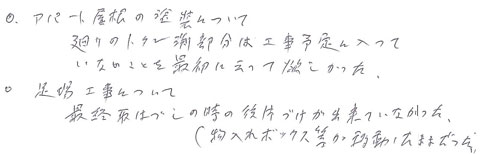 ○. アパート屋根の塗装について
廻りのトタン端部分は工事予定に入って
いないことを最初に云って欲しかった。
○ 足場工事について
最終取はづしの時の後片づけが出来ていなかった。
(物入れボックス等が移動したままだった)